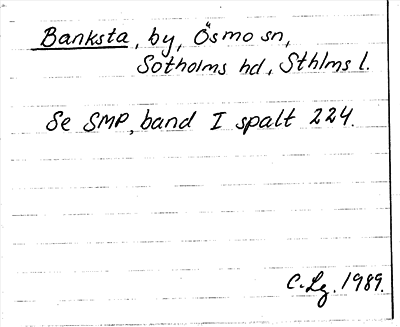 Banksta, by, Ösmo sn,
Sotholms hd, Sthlms l.
Se SMP, band I spalt 224.
C.Lg. 1989.